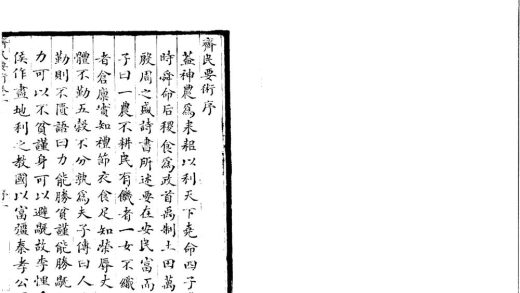 齊民要術序
蓋神農爲耒耜以利天下堯命四子
時舜命后稷食爲政首禹制土田萬
殷周之盛詩書所述要在安民富而
子曰一農不耕民有饑者一女不織
者倉廩實知禮節衣食足知榮辱丈
體不勤五穀不分孰爲夫子傳曰人
勤則不匱語曰力能勝貧謹能勝旤
力可以不貧謹身可以避旤故李悝
侯作盡地利之教國以富彊秦孝公